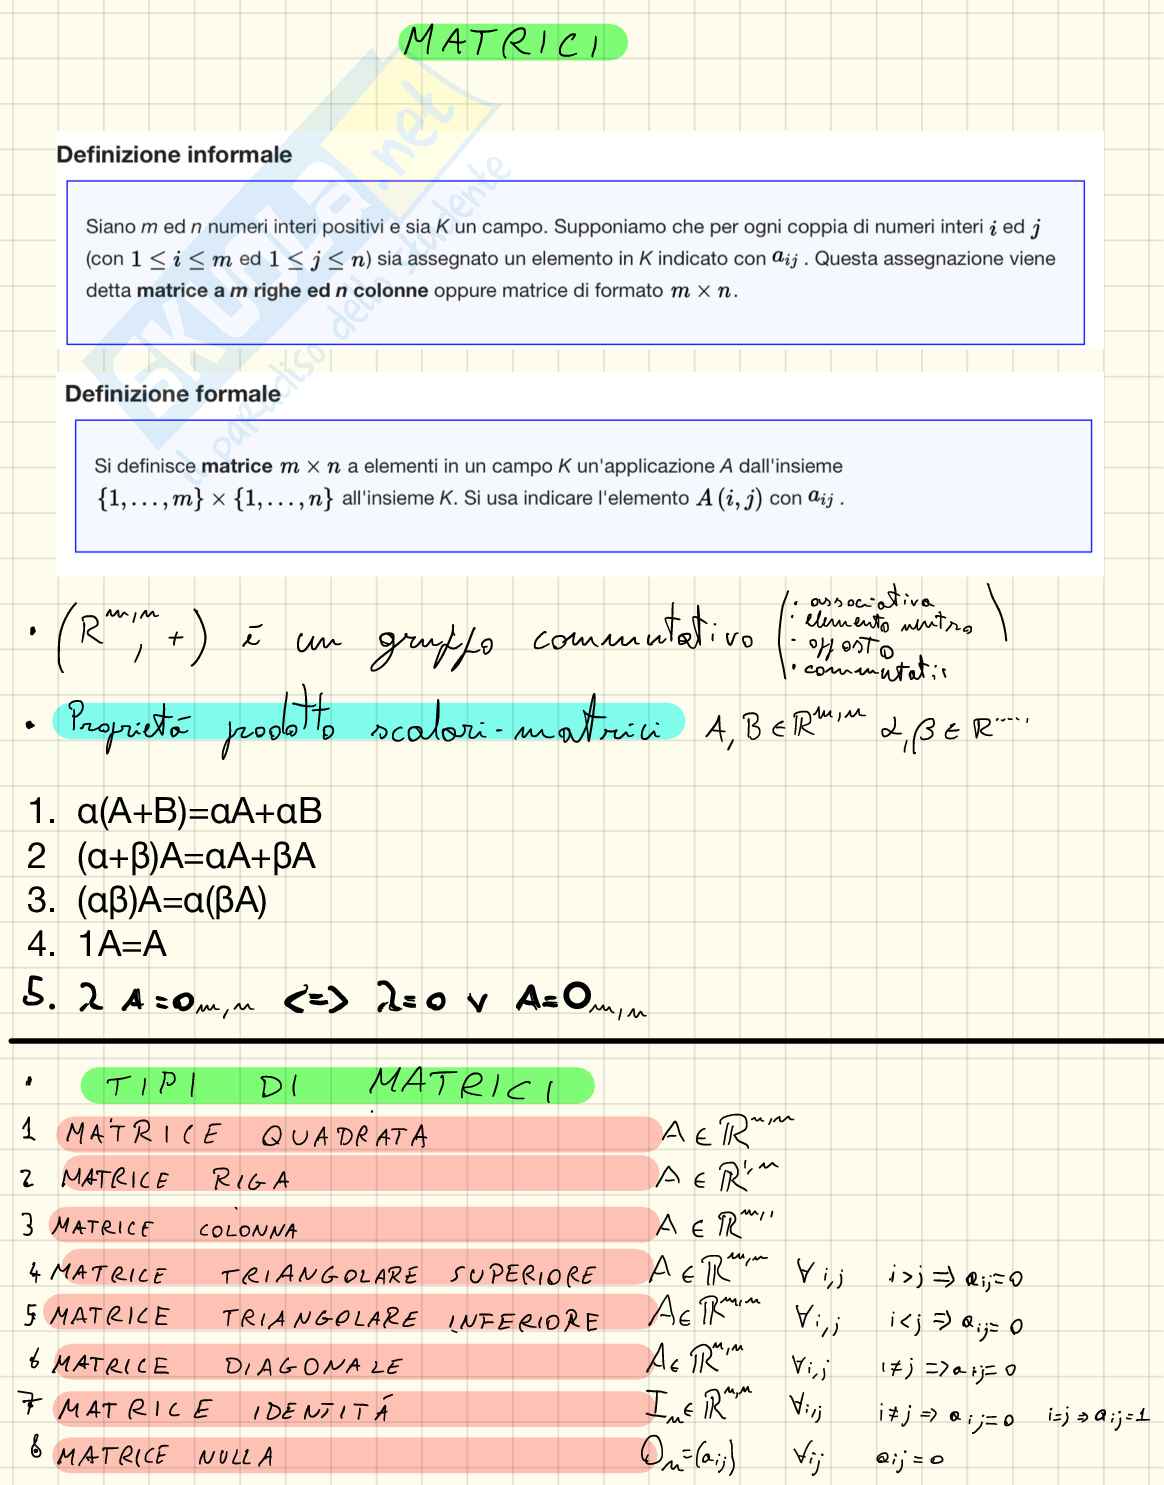 MATRICI
SKUOLA.net
il paradiso dello studente
Definizione informale
Siano m ed n numeri interi positivi e sia K un campo. Supponiamo che per ogni coppia di numeri interi i ed j
(con 1 ≤ i ≤ m ed 1 ≤ j ≤ n) sia assegnato un elemento in K indicato con aᵢⱼ . Questa assegnazione viene
detta matrice a m righe ed n colonne oppure matrice di formato m × n.
Definizione formale
Si definisce matrice m × n a elementi in un campo K un'applicazione A dall'insieme
{1, . . . , m} × {1, . . . , n} all'insieme K. Si usa indicare l'elemento A (i, j) con aᵢⱼ .
• (R^m,n, +) è un gruppo commutativo
• associativa
• elemento neutro
• opposto
• commutati
• Proprietà prodotto scalari-matrici A, B ∈ R^m,n α, β ∈ R
1. α(A+B)=αA+αB
2 (α+β)A=αA+βA
3. (αβ)A=α(βA)
4. 1A=A
5. λ A = 0m,n <=> λ=0 ∨ A=0m,n
• TIPI DI MATRICI
1 MATRICE QUADRATA A ∈ R^n,n
2 MATRICE RIGA A ∈ R^1,n
3 MATRICE COLONNA A ∈ R^m,1
4 MATRICE TRIANGOLARE SUPERIORE A ∈ R^n,n ∀ i,j i>j ⇒ aij=0
5 MATRICE TRIANGOLARE INFERIORE A ∈ R^n,n ∀i,j i<j ⇒ aij=0
6 MATRICE DIAGONALE A ∈ R^n,n ∀i,j i≠j => aij=0
7 MATRICE IDENTITÁ In ∈ R^n,n ∀i,j i≠j => aij=0 i=j ⇒ aij=1
8 MATRICE NULLA On=(aij) ∀ij aij=0